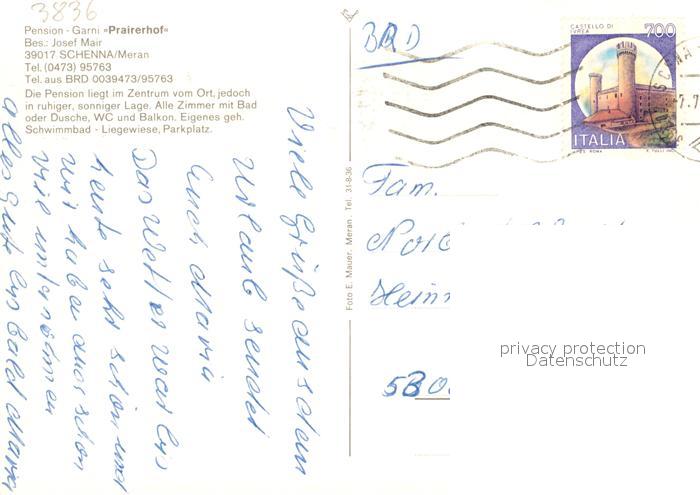 3836
Pension - Garni »Prairerhof«
Bes.: Josef Mair
39017 SCHENNA/Meran
Tel. (0473) 95763
Tel. aus BRD 0039473/95763
Die Pension liegt im Zentrum vom Ort, jedoch
in ruhiger, sonniger Lage. Alle Zimmer mit Bad
oder Dusche, WC und Balkon. Eigenes geh.
Schwimmbad - Liegewiese, Parkplatz.
Viele Grüße aus dem
Urlaub sendet
Euch Maria
Das Wetter war bis
heute sehr schön und
wir haben auch schon
viel unternommen
alles Gute bis bald Maria
Foto E. Mauer, Meran, Tel. 31-8-36
BRD
CASTELLO DI
IVREA
700
ITALIA
Fam.
privacy protection
Datenschutz